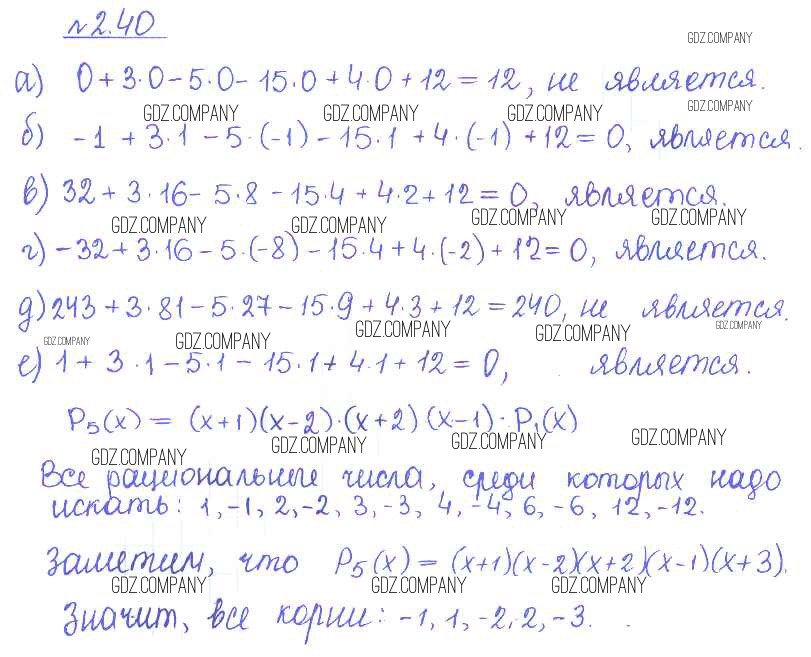 №2.40
GDZ.COMPANY
а) 0+3·0-5·0-15·0+4·0+12=12, не является.
GDZ.COMPANY GDZ.COMPANY GDZ.COMPANY GDZ.COMPANY
б) -1+3·1-5·(-1)-15·1+4·(-1)+12=0, является.
в) 32+3·16-5·8-15·4+4·2+12=0, является.
GDZ.COMPANY GDZ.COMPANY GDZ.COMPANY GDZ.COMPANY
г) -32+3·16-5·(-8)-15·4+4·(-2)+12=0, является.
д) 243+3·81-5·27-15·9+4·3+12=240, не является.
GDZ.COMPANY GDZ.COMPANY GDZ.COMPANY GDZ.COMPANY GDZ.COMPANY
е) 1+3·1-5·1-15·1+4·1+12=0, является.
P₅(x)=(x+1)(x-2)·(x+2)(x-1)·P₁(x)
GDZ.COMPANY GDZ.COMPANY GDZ.COMPANY GDZ.COMPANY
Все рациональные числа, среди которых надо
искать: 1,-1, 2,-2, 3,-3, 4,-4, 6,-6, 12,-12.
Заметим, что P₅(x)=(x+1)(x-2)(x+2)(x-1)(x+3).
GDZ.COMPANY GDZ.COMPANY GDZ.COMPANY
Значит, все корни: -1, 1, -2, 2, -3.